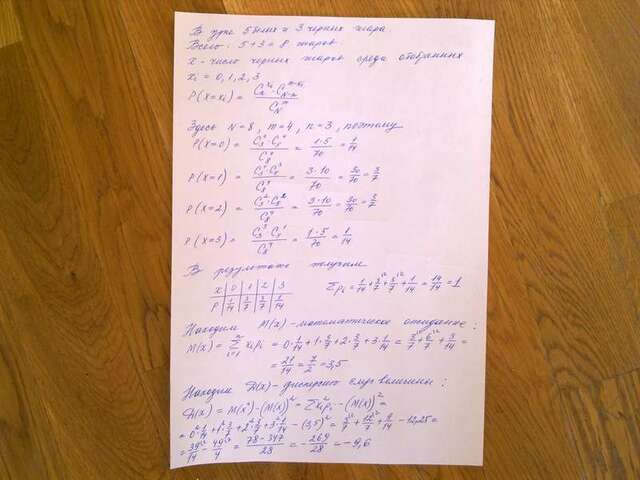 В урне 5 белых и 3 черных шара
Всего: 5+3 = 8 шаров.
X - число черных шаров среди отобранных
xi = 0, 1, 2, 3
P(X=xi) = C_n^{xi} · C_{N-n}^{m-xi} / C_N^m
Здесь N=8, m=4, n=3, поэтому
P(X=0) = C_3^0 · C_5^4 / C_8^4 = 1·5/70 = 1/14
P(X=1) = C_3^1 · C_5^3 / C_8^4 = 3·10/70 = 30/70 = 3/7
P(X=2) = C_3^2 · C_5^2 / C_8^4 = 3·10/70 = 30/70 = 3/7
P(X=3) = C_3^3 · C_5^1 / C_8^4 = 1·5/70 = 1/14
В результате получим
X | 0 | 1 | 2 | 3
P | 1/14 | 3/7 | 3/7 | 1/14
Σpi = 1/14 + 3/7 + 3/7 + 1/14 = 14/14 = 1
Находим M(x) - математическое ожидание:
M(x) = Σ xipi = 0·1/14 + 1·3/7 + 2·3/7 + 3·1/14 = 3/7 + 6/7 + 3/14 =
= 21/14 = 7/2 = 3,5
Находим D(x) - дисперсию случ величины:
D(x) = M(x²) - (M(x))² = Σxi²pi - (M(x))² =
= 0²·1/14 + 1²·3/7 + 2²·3/7 + 3²·1/14 - (3,5)² = 3/7 + 12/7 + 9/14 - 12,25 =
= 39/14 - 49/4 = 78-347/28 = -269/28 = -9,6